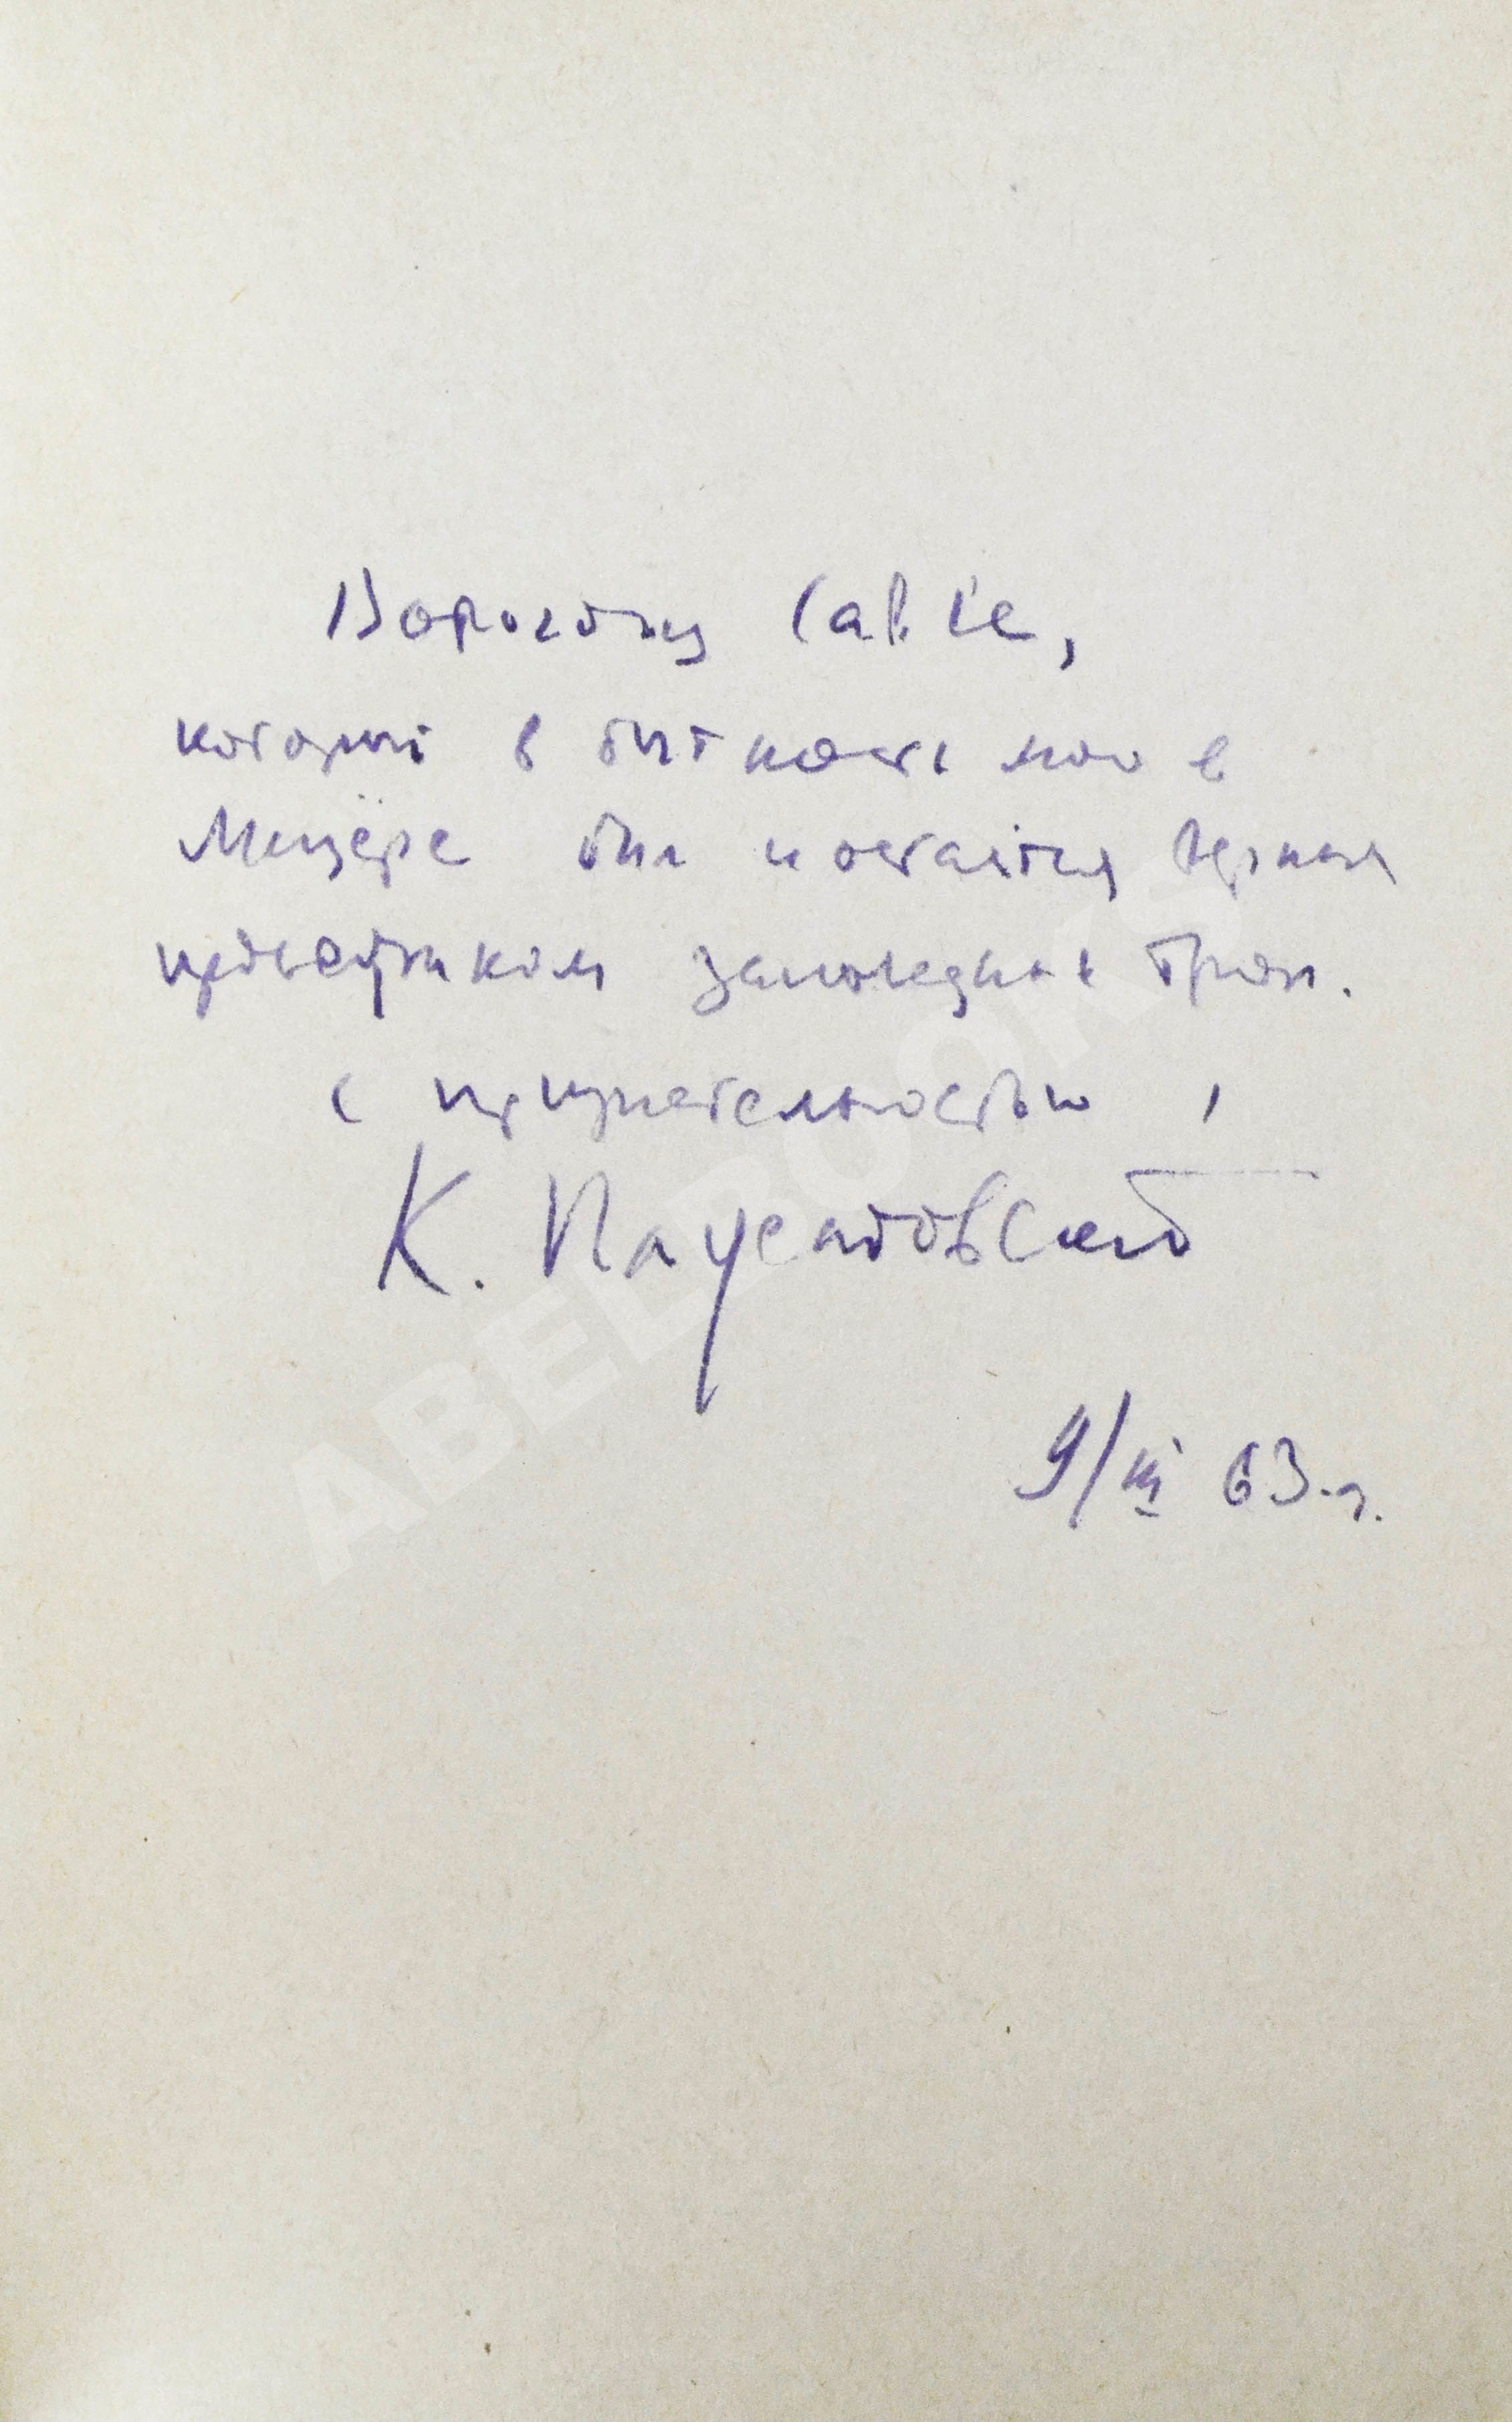 Савве,
который в бытность мою в
Мещёре был и остаётся верным
заповедных троп.
С признательностью,
К. Паустовский
9/III 63 г.
ABELBOOK